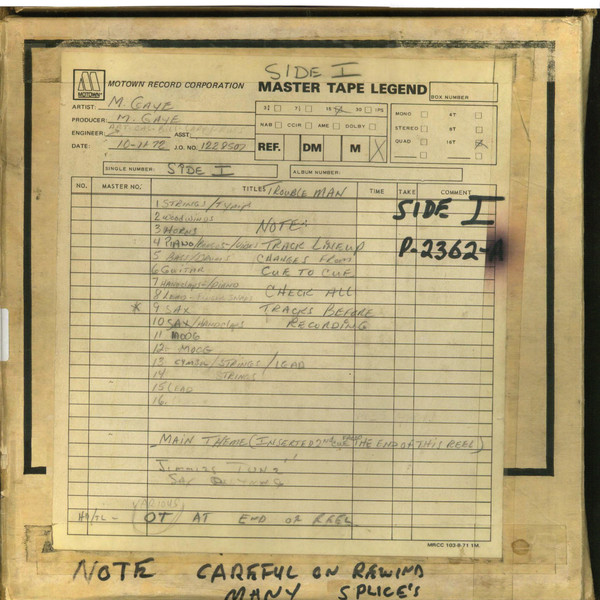 SIDE I
MOTOWN RECORD CORPORATION MASTER TAPE LEGEND BOX NUMBER
MOTOWN
ARTIST: M. GAYE
PRODUCER: M. GAYE
ENGINEER: ASST.
DATE: 10-11-72 J.O. NO. 1228507
3¾ 7½ 15 30 IPS
NAB CCIR AME DOLBY
REF. DM M X
MONO 4T
STEREO 8T
QUAD 16T
SINGLE NUMBER: SIDE I ALBUM NUMBER:
NO. MASTER NO. TITLES TROUBLE MAN TIME TAKE COMMENT
SIDE I
P-2362-A
1 STRINGS/TYMP
2 WOODWINDS NOTE:
3 HORNS
4 PIANO/ TRACK LINEUP
5 BASS/DRUMS CHANGES FROM
6 GUITAR CUE TO CUE
7 HANDCLAPS/PIANO
8 LEAD CHECK ALL
* 9 SAX TRACKS BEFORE
10 SAX/HANDCLAPS RECORDING
11 MOOG
12 MOOG
13 CYMBAL/STRINGS/LEAD
14 STRINGS
15 LEAD
16.
MAIN THEME (INSERTED 2ND CUE FROM THE END OF THIS REEL)
VARIOUS
OT AT END OF REEL
MRCC 193-9 71 1M
NOTE CAREFUL ON REWIND
MANY SPLICE'S